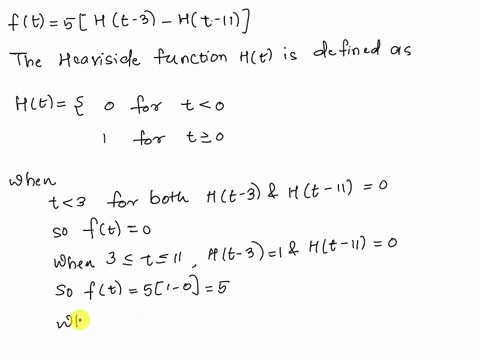 f(t) = 5[H(t-3) - H(t-11)]
The Heaviside function H(t) is defined as
H(t) = { 0 for t < 0
1 for t ≥ 0
When
t < 3 for both H(t-3) & H(t-11) = 0
so f(t) = 0
When 3 ≤ t ≤ 11, H(t-3) = 1 & H(t-11) = 0
So f(t) = 5[1-0] = 5